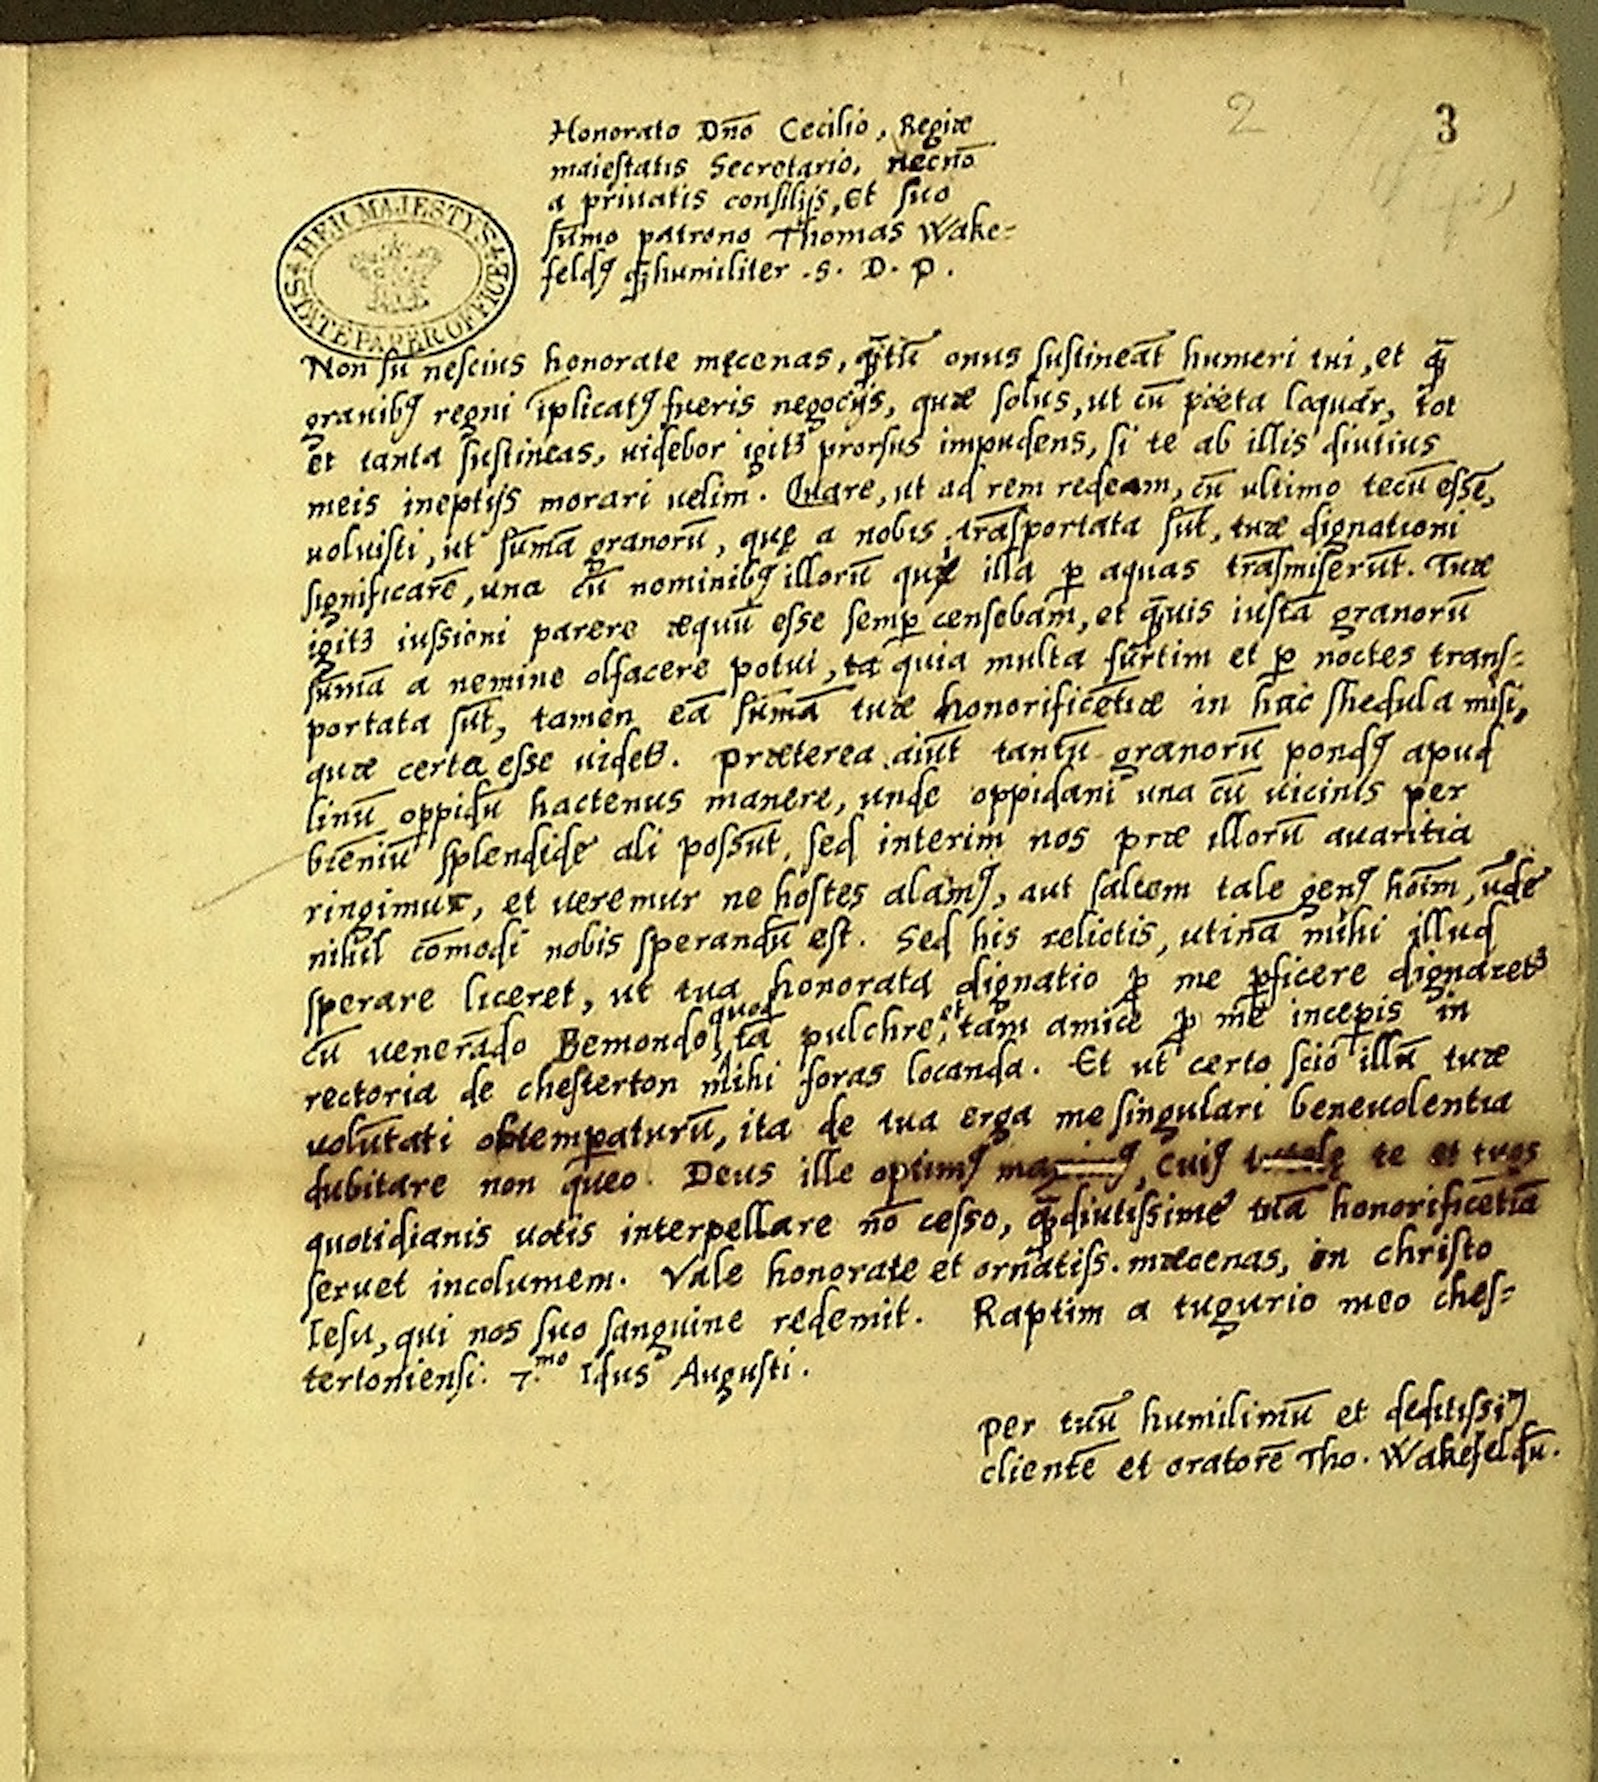 2
3
Honorato Dño Cecilio, Regiæ
maiestatis Secretario, necnõ
a priuatis consilijs, Et suo
sũmo patrono Thomas Wake=
feldꝰ q̃humiliter .s. D. p.
HER MAJESTY'S STATE PAPER OFFICE
Non sũ nescius honorate męcenas, q̃tũ onus sustineãt humeri tui, et q̃
grauibꝰ regni ĩplicatꝰ fueris negocijs, quæ solus, ut cũ poëta loquar, tot
et tanta sustineas, uidebor igitꝫ prorsus impudens, si te ab illis diutius
meis ineptijs morari uelim. Quare, ut ad rem redeam, cũ ultimo tecũ essẽ,
uoluisti, ut sũmã granorũ, quę a nobis trãsportata sũt, tuæ dignationi
significarẽ, una cũ nominibꝰ illorũ qui illa ꝑ aquas trãsmiserũt. Tuæ
igitꝫ iussioni parere æquũ esse semꝑ censebam, et q̃uis iustã granorũ
sũmã a nemine olfacere potui, tã quia multa furtim et ꝑ noctes trans=
portata sũt, tamen eã sũmã tuæ honorificẽtiæ in hac shedula misi,
quæ certa esse uidetꝫ. præterea aiũt tantũ granorũ pondꝰ apud
linũ oppidũ hactenus manere, unde oppidani una cũ uicinis per
biẽniũ splendide ali possũt, sed interim nos præ illorũ auaritia
ringimur, et ueremur ne hostes alamꝰ, aut saltem tale genꝰ hoĩm, ũde
nihil cõmodi nobis sperandũ est. Sed his relictis, utinã mihi illud
sperare liceret, ut tua honorata dignatio ꝓ me ꝑficere dignaretꝫ
cũ venerãdo Bemondo, quod tã pulchre, et tam amice ꝓ me inceꝑis in
rectoria de chesterton mihi foras locanda. Et ut certo scio illũ tuæ
uolũtati obtemꝑaturũ, ita de tua erga me singulari beneuolentia
dubitare non queo. Deus ille optimꝰ maximꝰ, cuiꝰ tutelę te et tuos
quotidianis uotis interpellare nõ cesso, q̃diutissime tuã honorificẽtiã
seruet incolumem. Vale honorate et ornatiss. mæcenas, in christo
Iesu, qui nos suo sanguine redemit. Raptim a tugurio meo ches=
tertoniensi. 7.mo Idus Augusti.
per tuũ humilimũ et deditissiꝫ
clientẽ et oratorẽ Tho. Wakefeldũ.